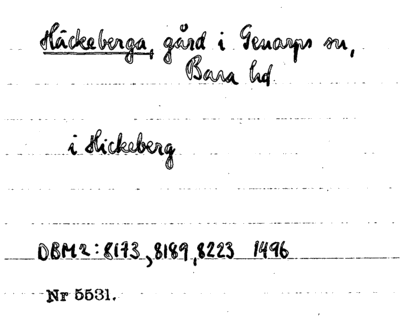 Häckeberga, gård i Genarps sn,
Bara hd
i Hickeberg
DBM2:8173,8189,8223 1496
Nr 5531.